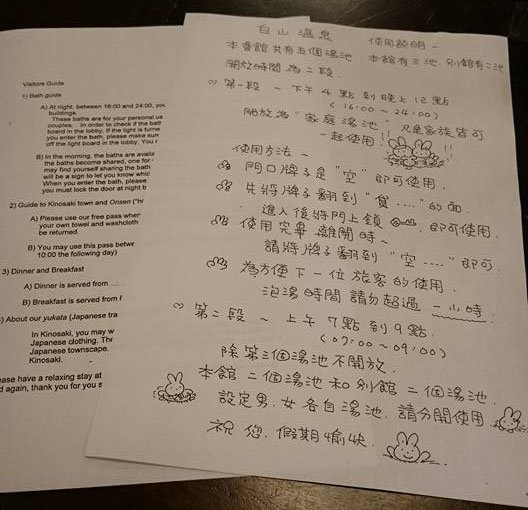 Visitors Guide
1) Bath guide
A) At night, between 16:00 and 24:00, you
buildings.
These baths are for your personal us
couples. In order to check if the bath
board in the lobby. If the light is turne
you enter the bath, please make sure
off the light board in the lobby. You r
B) In the morning, the baths are availa
the baths become shared, one for
may find yourself sharing the bath
will be a sign to let you know whic
When you enter the bath, please
you must lock the door at night b
2) Guide to Kinosaki town and Onsen ("h
A) Please use our free pass when
your own towel and washcloth
be returned.
B) You may use this pass betwe
10:00 the following day)
3) Dinner and Breakfast
A) Dinner is served from
B) Breakfast is served from f
) About our yukata (Japanese tra
In Kinosaki, you may w
Japanese clothing. The
Japanese townscape.
Kinosaki.
ease have a relaxing stay at
d again, thank you for you s
白山溫泉 使用說明~
本會館共有五個湯池.本館有三池.別館有二池
開放時間為二段.
第一段~下午4點到晚上12點
(16:00~24:00)
開放為"家庭湯池".只是家族皆可
一起使用!!
使用方法~
門口牌子是"空"即可使用.
先將牌子翻到"貸....."的面
.進入後將門上鎖.即可使用.
使用完畢.離開時~
請將牌子翻到"空....."即可.
為方便下一位旅客的使用.
泡湯時間請勿超過一小時.
第二段~上午7點到9點.
(07:00~09:00)
除第三個湯池不開放.
本館二個湯池和別館二個湯池.
設定男.女各自湯池.請分開使用.
祝您.假期愉快.